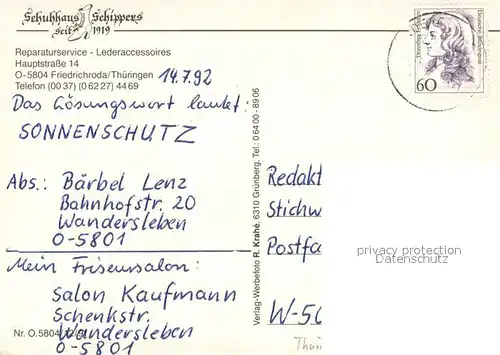 Schuhhaus Schippers
seit 1919
Reparaturservice - Lederaccessoires
Hauptstraße 14
O-5804 Friedrichroda/Thüringen
Telefon (00 37) (0 62 27) 44 69
14.7.92
Das Lösungswort lautet:
SONNENSCHUTZ
Abs.: Bärbel Lenz
Bahnhofstr. 20
Wandersleben
O-5801
Mein Friseursalon:
Salon Kaufmann
Schenkstr.
Wandersleben
O-5801
Nr. O.5804
Verlag-Werbefoto R. Krahé, 6310 Grünberg, Tel.: 0 64 00 - 89 06
60
Deutsche Bundespost
Redakt
Stichw
Postfa
privacy protection
Datenschutz
W-50
Thür